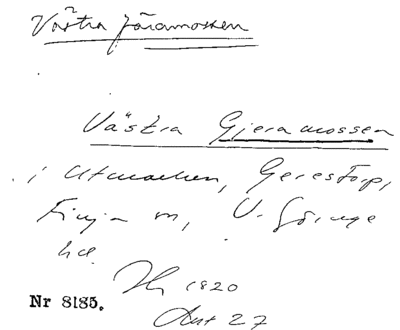 Västra Järamossen
Västra Gjeramossen
i Utmarken, Gerestorp,
Finja sn, V. Göinge
hd.
1820
Nr 8185.
Akt 27